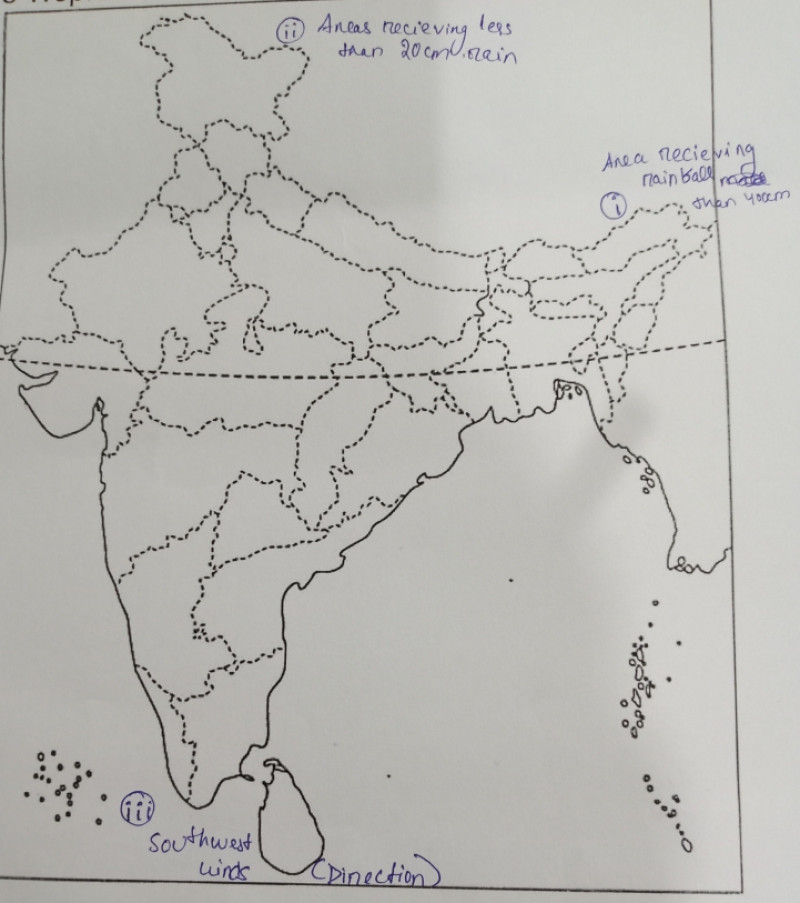 ii Areas recieving less
than 20cm rain
Area recieving
rainball
i than 400cm
iii
Southwest
winds (Direction)